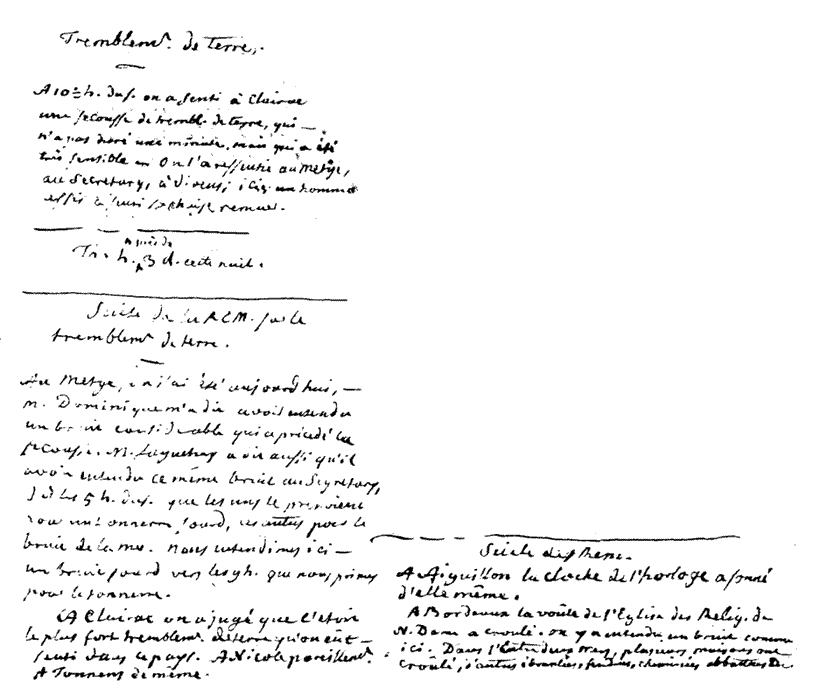 Tremblemt. de terre.
A 10 h. du s. on a senti à Clairac
une secousse de trembl. de terre, qui —
n'a pas duré une minute, mais qui a été
très sensible. On l'a ressentie au Metge,
au Secretary, à ici un homme
assis a senti sa chaise remuer.
après de
Tr. h. 3 d. cette nuit.
Suite de la RCM. sur le
tremblemt. de terre.
Au Metge, où j'ai été aujourd'hui, —
M. Dominique m'a dit avoir entendu
un bruit considérable qui a précédé la
secousse. M. Laguehay a dit aussi qu'il
avoit entendu ce même bruit au Segretary,
les 5 h. du s. que les uns le prirent
pour un tonnerre sourd, les autres pour le
bruit de la mer. Nous entendimes ici —
un bruit sourd vers les 9 h. que nous primes
pour le tonnerre.
A Clairac on a jugé que c'étoit
le plus fort tremblemt. de terre qu'on eût —
senti dans ce pays. A Nicole pareillemt.
A Tonneins de même.
Suite des Phen.
A Aiguillon la cloche de l'horloge a sonné
d'elle même.
A Bordeaux la voûte de l'Eglise des Relig. de
N. Dame a croulé. on y a entendu un bruit comme
ici. Dans l'Entre deux mers, plusieurs maisons ont
croûlé, d'autres ébranlées, fendues, cheminées abbattues &c